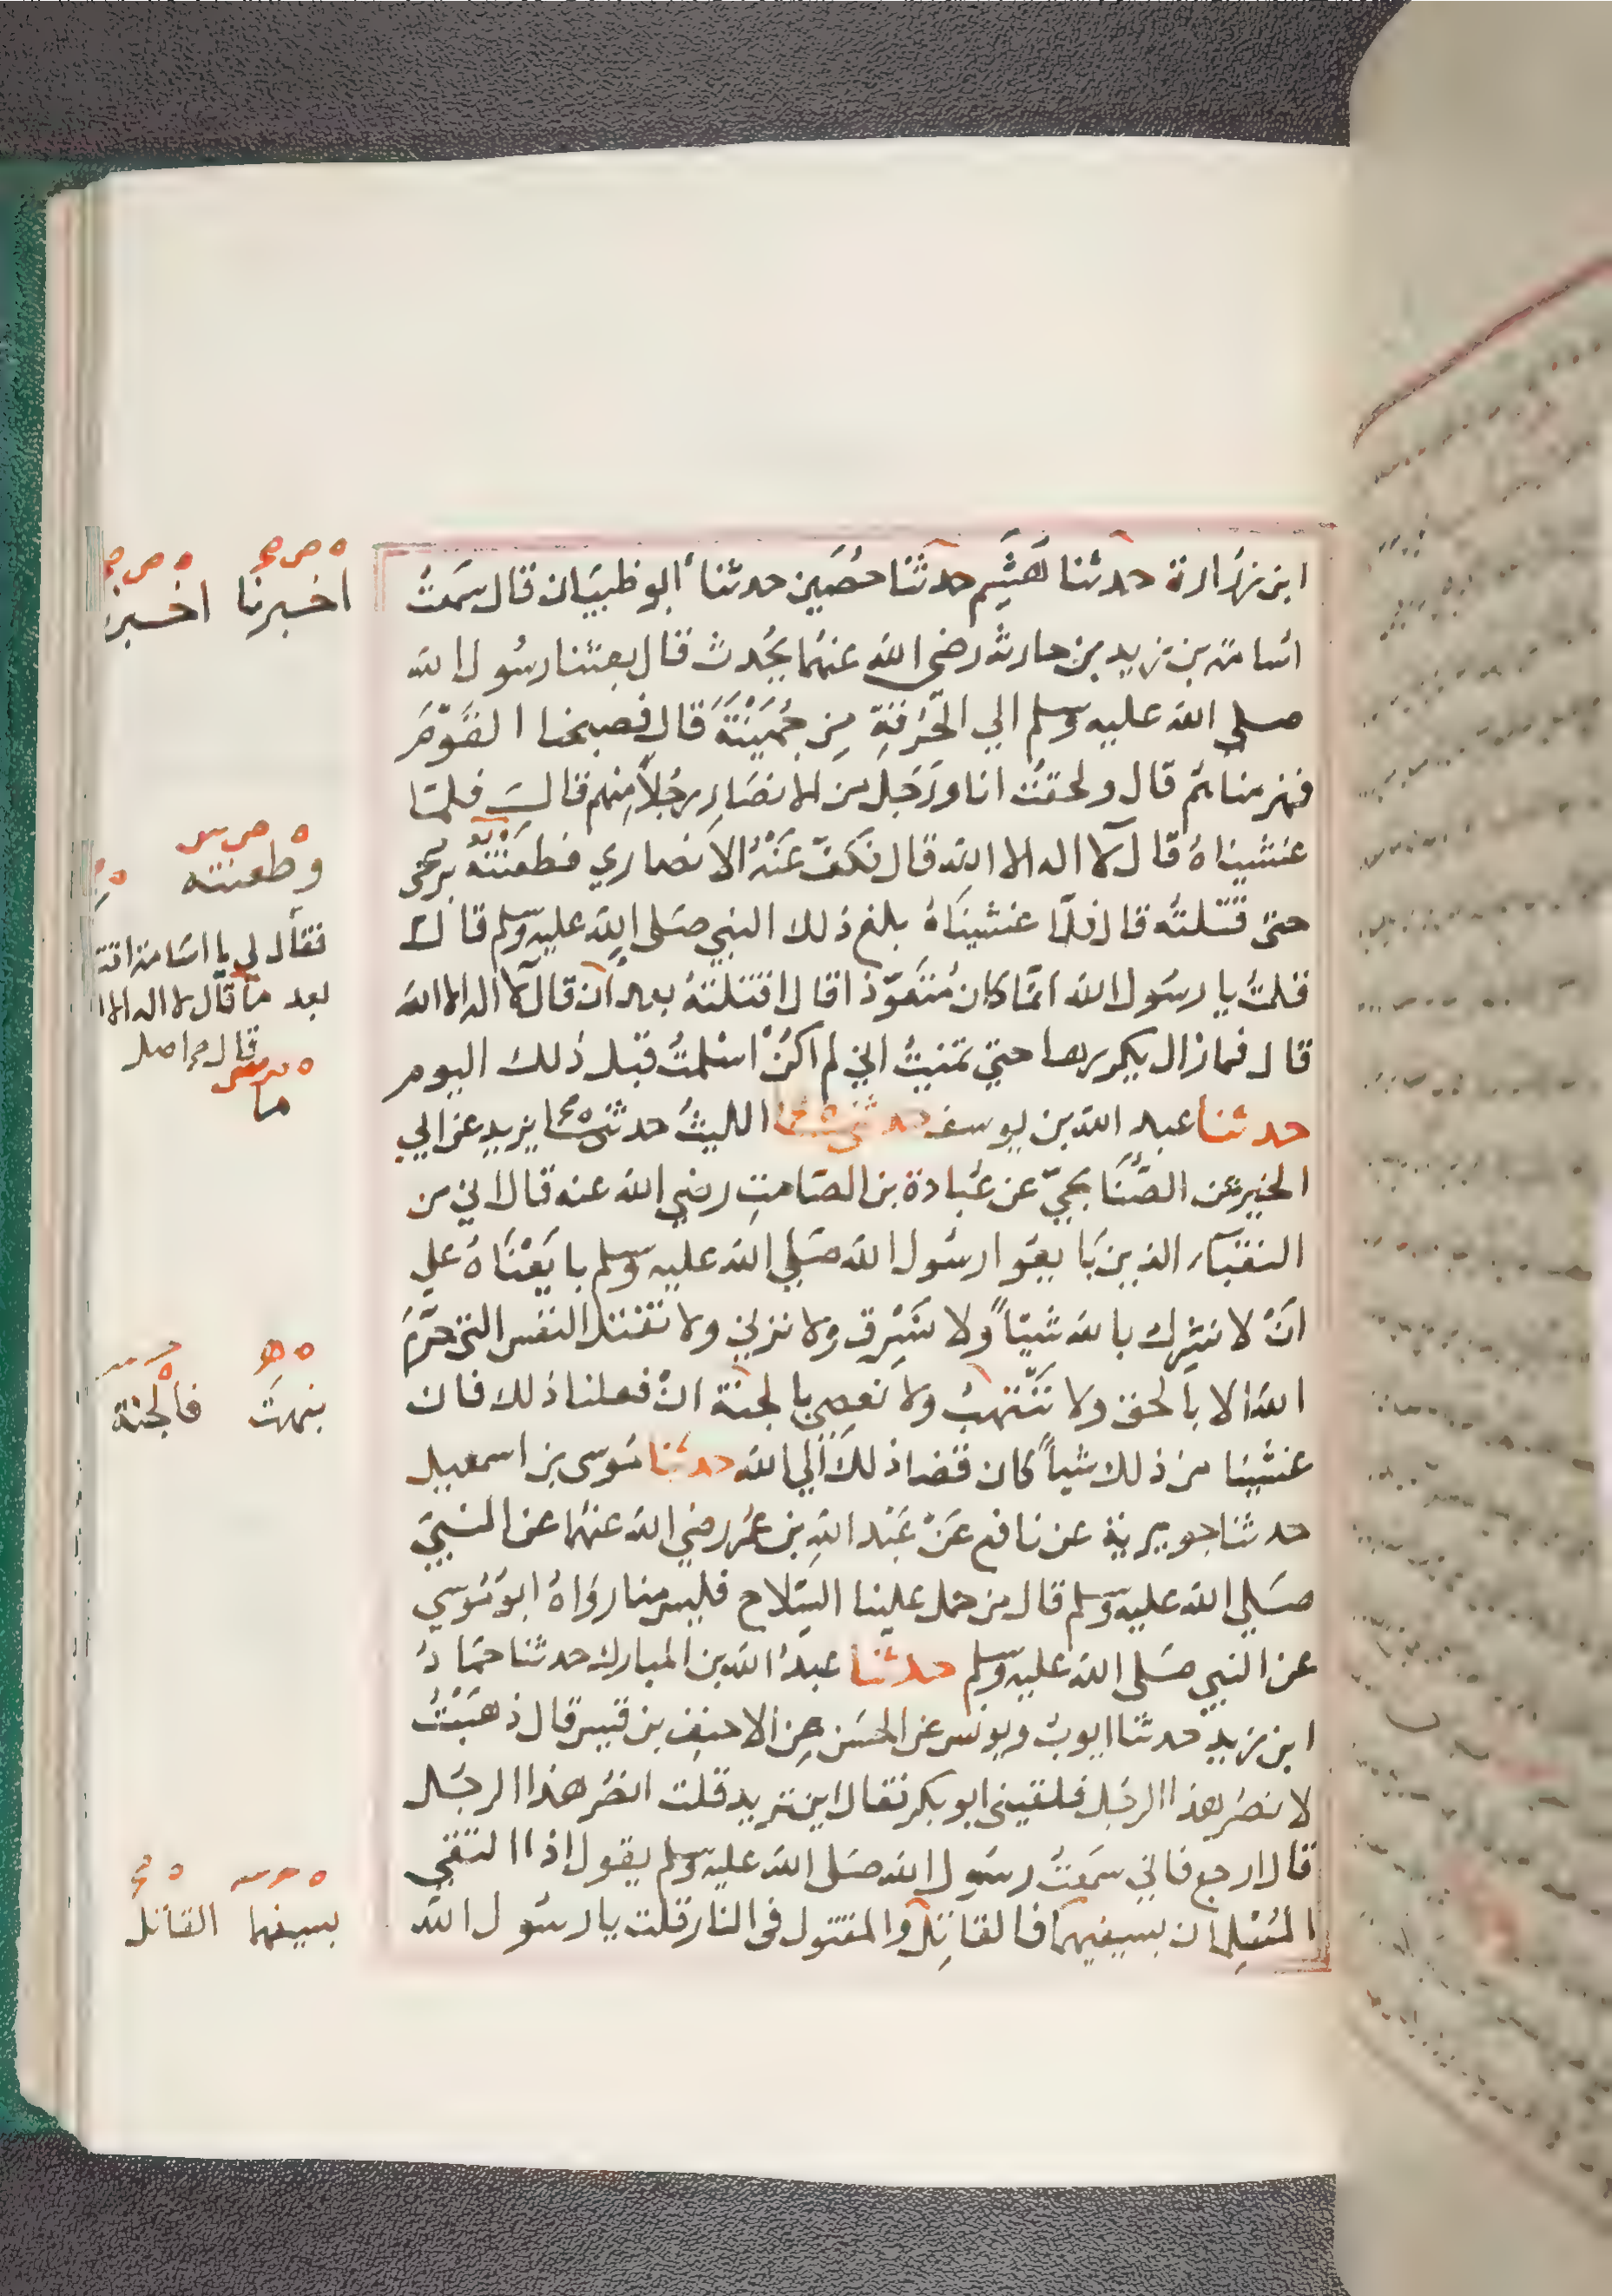 ابن زرارة حدثنا هشيم حدثنا حصين حدثنا ابو ظبيان قال سمعتُ
اسامة بن زيد بن حارثة رضي الله عنهما يحدث قال بعثنا رسول الله
صلى الله عليه وسلم الي الحُرَقَةِ مِن جُهَيْنَةَ قال فصبحنا القوْمَ
فهزمناهم قال ولحقتُ انا ورَجُل من الانصَارِ رجُلاً مِنهم قال فلمّا
غشيناهُ قال لا اله الا الله قال فكفّ عَنْهُ الانصاري فطعنْتُه برمحي
حتى قتلتُه قال فلمّا غشينَاهُ بلغ ذلك النبي صَلى الله عليه وسلم قال
قلتُ يا رسُول الله انّما كان مُتَعَوّذا قال اقتلتهُ بعد أن قال لا اله الا الله
قال فما زال يكررها حتى تمنيتُ اني لم اكنْ اسْلمتُ قبل ذلك اليوم
حدثنا عبد الله بن يوسف حدثنا الليثُ حدثنا يزيد عن ابي
الخير عن الصُّنَابحيّ عن عُبادة بن الصَامتِ رضي الله عنه قال اني من
النقبَاء الذين بَايعَوا رسُول الله صَلي الله عليه وسلم بايَعْنَاهُ علي
انْ لا نشرك بالله شيئاً ولا نَسْرِق ولا نزني ولا نقتل النفس التي حَرّمَ
الله الا بالحق ولا نَنْتهبُ ولا نعصي بالجنة انْ فعلنا ذلك فان
غشينا من ذلك شياً كان قضا ذلك الي الله حدثنا مُوسى بن اسمعيل
حدثنا جويرية عن نافع عَنْ عَبْد اللهِ بن عُمَر رضي الله عنهما عن النبيّ
صَلي الله عليه وسلم قال من حمل علينا السّلاح فليس منا روَاهُ ابو مُوسي
عن النبي صَلى الله عليه وسلم حدثنا عبدُ الله بن المبارك حدثنا حمّادُ
ابن زيد حدثنا ايوبُ ويونس عن الحسَن عن الاحنفِ بن قيس قال ذهَبْتُ
لانصُر هذا الرجُل فلقيني ابو بكر فقال اين تريد قلت انصُر هذا الرجُل
قال ارجع فاني سمَعتُ رسَول الله صَلى الله عليه وسلم يقول اذا التقي
المُسْلِمان بسيفيهما فالقاتِل والمقتول في النار قلت يا رسُول الله
اخبرنا اخبرنا
وطعنته
فقال لي يا اسَامة
بعد ما قال لا اله الا
قال اصل
ما
ننهبَ فالجنة
بسيفهما القاتل